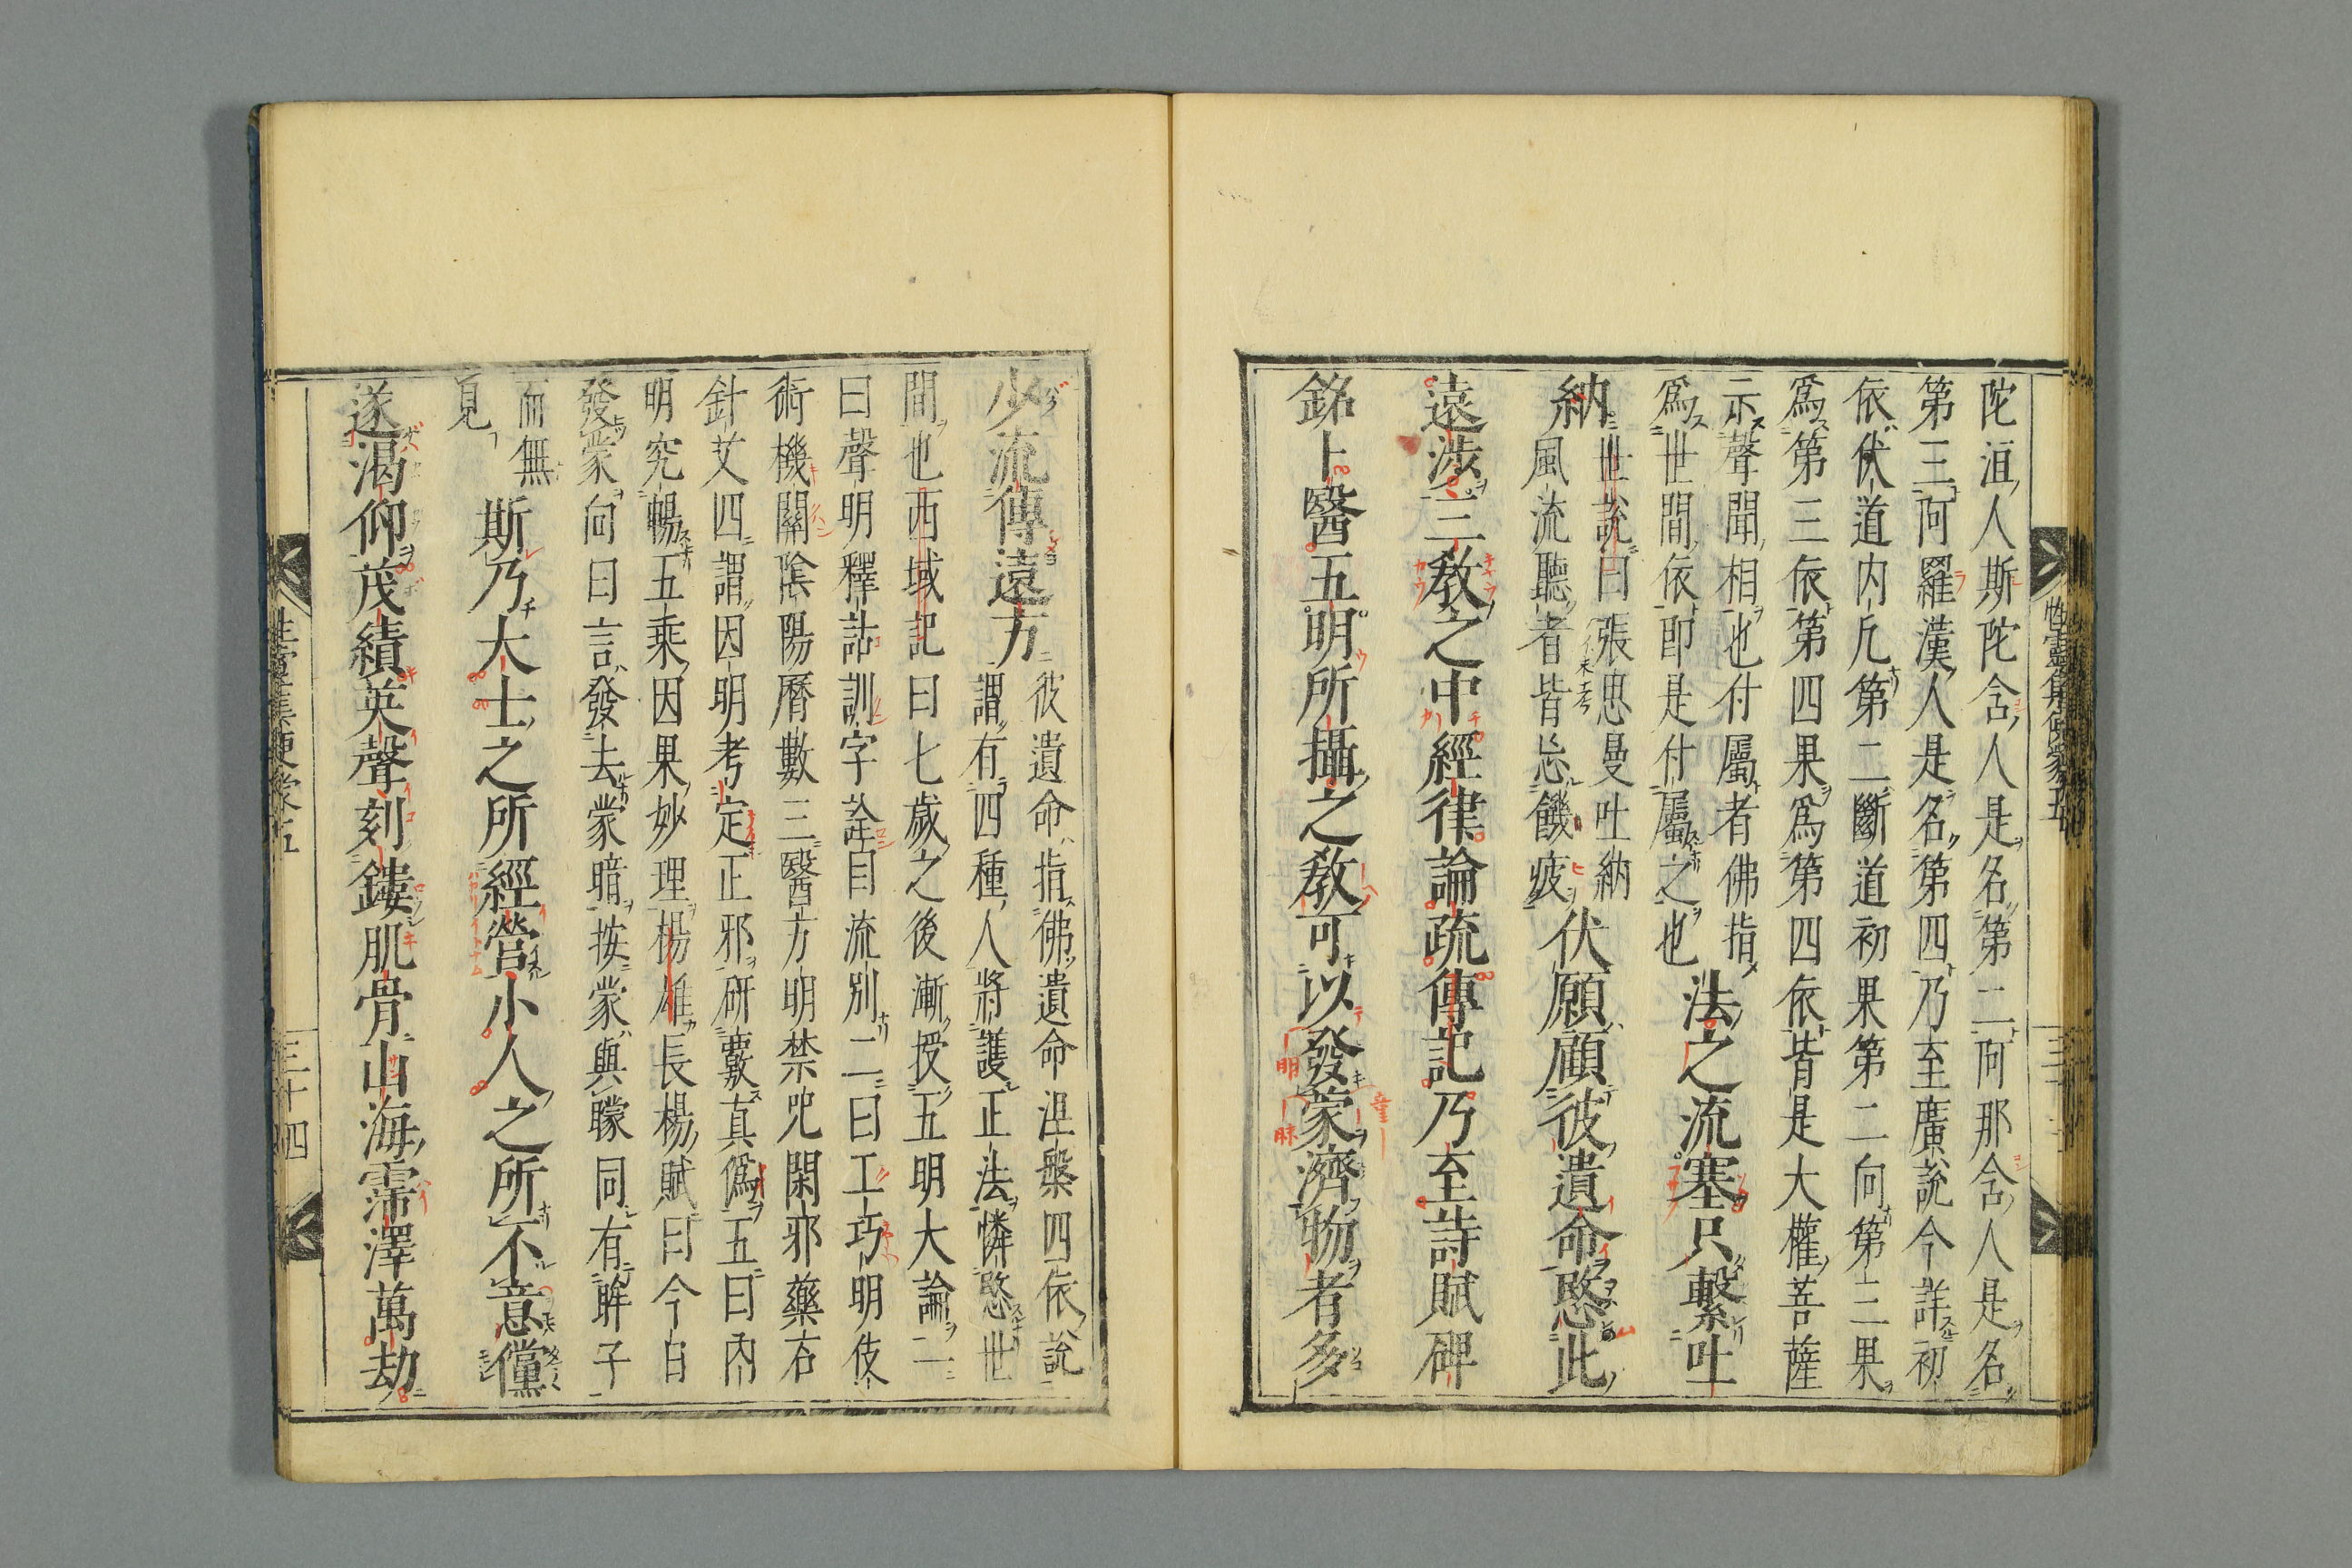 陀洹人斯陀含人是名第二阿那含人是名
第三阿羅漢人是名第四乃至廣説今詳初
依伏道内凡第二斷道初果第二向第三果
爲第三依第四果爲第四依皆是大權菩薩
示聲聞相也付屬者佛指
爲世間依即是付屬之也
法之流塞只繫吐
納
世説曰張思曼吐納
風流聽者皆忘饑疲
伏願顧彼遺命愍此
遠涉三教之中經律論疏傳記乃至詩賦碑
銘卜醫五明所攝之教可以發蒙濟物者多
少流傳遠方
彼遺命指佛遺命涅槃四依説
謂有四種人將護正法憐愍世
間也西域記曰七歳之後漸授五明大論一
曰聲明釋詁訓字詮目流別二曰工巧明伎
術機關陰陽暦數三醫方明禁呪閑邪藥石
針艾四謂因明考定正邪研覈真僞五曰內
明究暢五乘因果妙理楊雄長楊賦曰今日
發蒙向曰言發去蒙暗按蒙與矇同有眸子
而無
見
斯乃大士之所經營小人之所不意儻
遂渴仰茂績英聲刻鏤肌骨山海霈澤萬劫
性靈集便蒙五
三十四